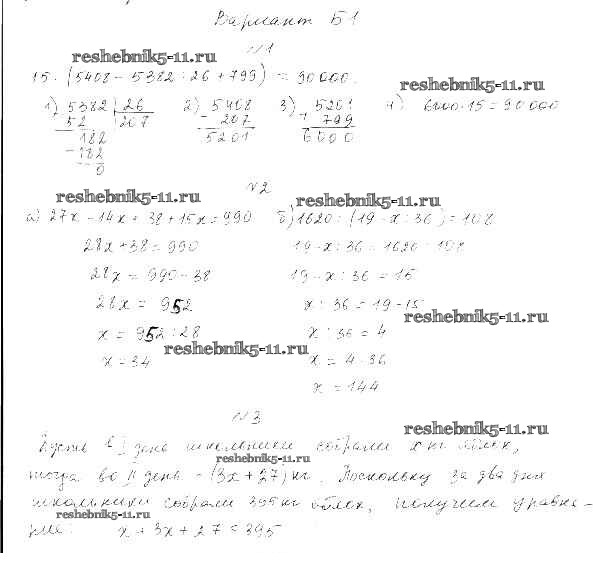 Вариант Б1
№1
reshebnik5-11.ru
15·(5408 - 5382 : 26 + 799) = 90000.
reshebnik5-11.ru
1) 5382 | 26 2) 5408 3) 5201 4) 6000·15 = 90 000
52 207 - 207 + 799
182 5201 6000
- 182
0
№2
reshebnik5-11.ru reshebnik5-11.ru
а) 27x - 14x + 38 + 15x = 990 б) 1620 : (19 - x : 36) = 108
28x + 38 = 990 19 - x : 36 = 1620 : 108
28x = 990 - 38 19 - x : 36 = 15
28x = 952 x : 36 = 19 - 15
reshebnik5-11.ru
x = 952 : 28 x : 36 = 4
reshebnik5-11.ru
x = 34 x = 4·36
x = 144
№3
reshebnik5-11.ru
Пусть в I день школьники собрали x кг яблок,
reshebnik5-11.ru
тогда во II день - (3x + 27) кг. Поскольку за два дня
школьники собрали 395 кг яблок, получим уравне-
reshebnik5-11.ru
ние: x + 3x + 27 = 395